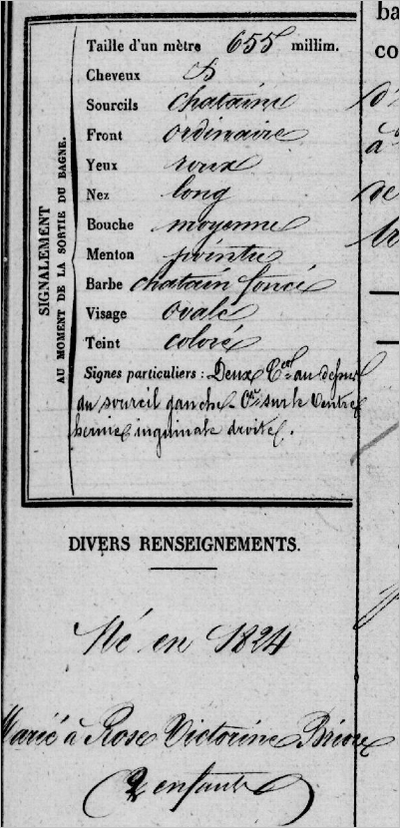 ba
co
SIGNALEMENT
AU MOMENT DE LA SORTIE DU BAGNE.
Taille d'un mètre 655 millim.
Cheveux
Sourcils chatains
Front ordinaire
Yeux roux
Nez long
Bouche moyenne
Menton pointu
Barbe chatain foncé
Visage ovale
Teint coloré
Signes particuliers : Deux Ces au dessus
du sourcil gauche. Cce sur le ventre
hernie inguinale droite.
DIVERS RENSEIGNEMENTS.
Né en 1824
Marié à Rose Victorine
2 enfants